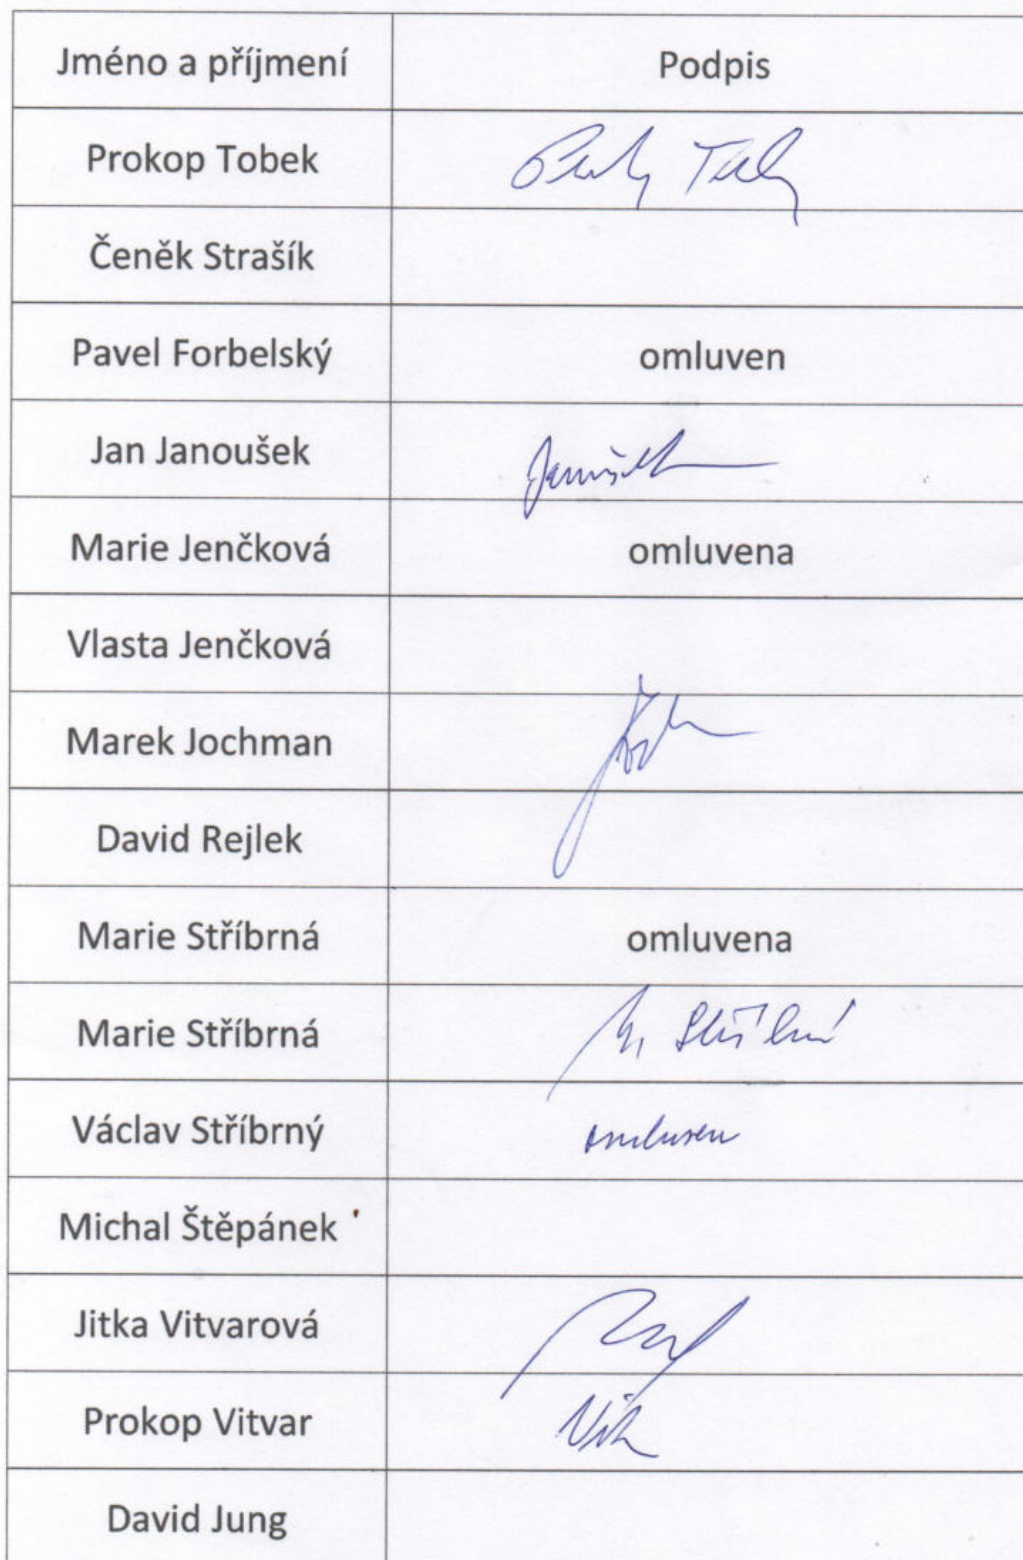 Jméno a příjmení Podpis
Prokop Tobek
Čeněk Strašík
Pavel Forbelský omluven
Jan Janoušek Janoušek
Marie Jenčková omluvena
Vlasta Jenčková
Marek Jochman
David Rejlek
Marie Stříbrná omluvena
Marie Stříbrná M. Stříbrná
Václav Stříbrný omluven
Michal Štěpánek
Jitka Vitvarová
Prokop Vitvar
David Jung